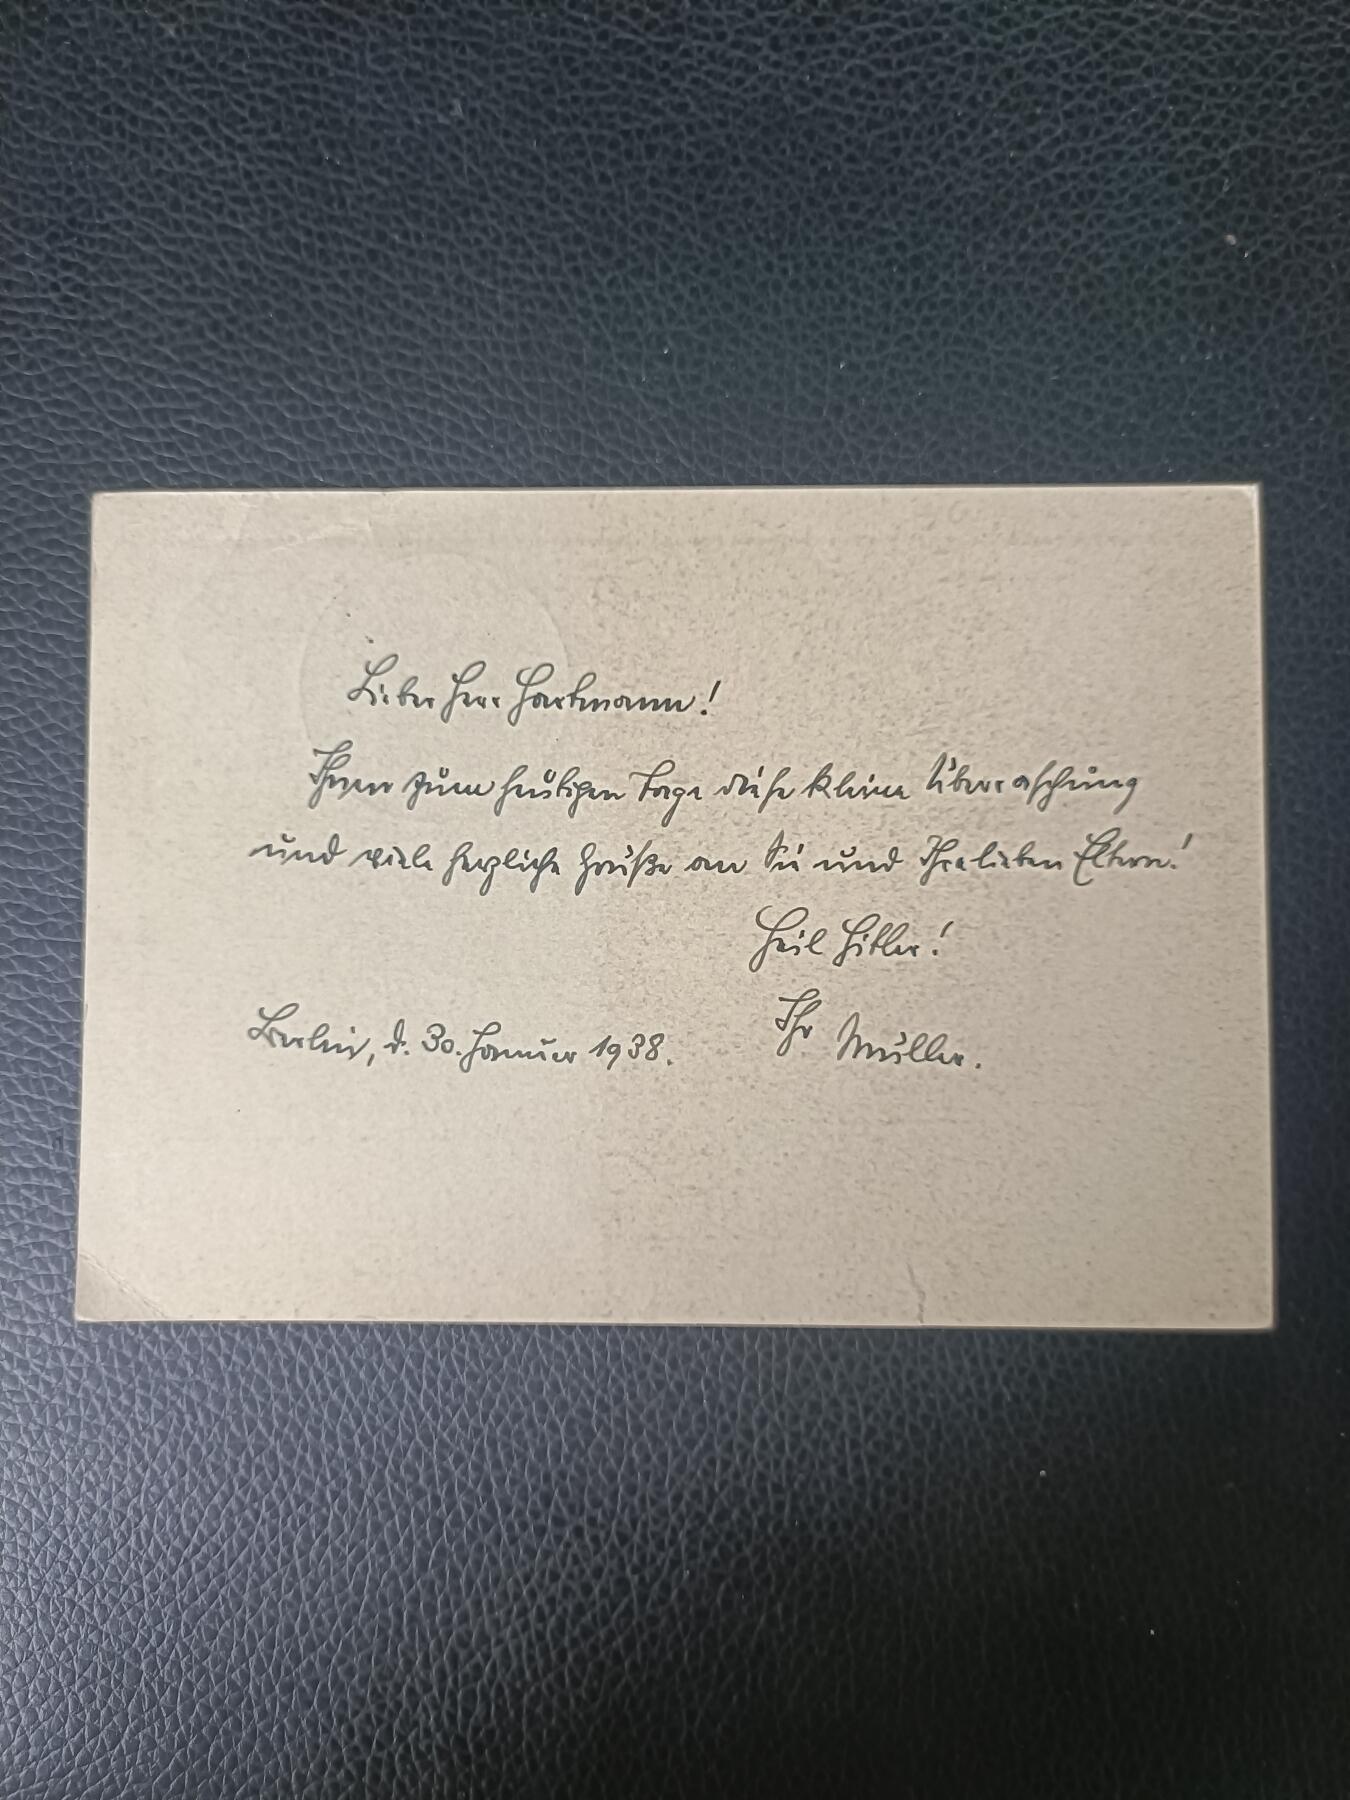 Lieber Herr Hartmann!
Ihnen zum heutigen Tage diese kleine Überraschung
und viele herzliche Grüße an Sie und Ihre lieben Eltern!
Heil Hitler!
Berlin, d. 30. Januar 1938. Ihr Müller.